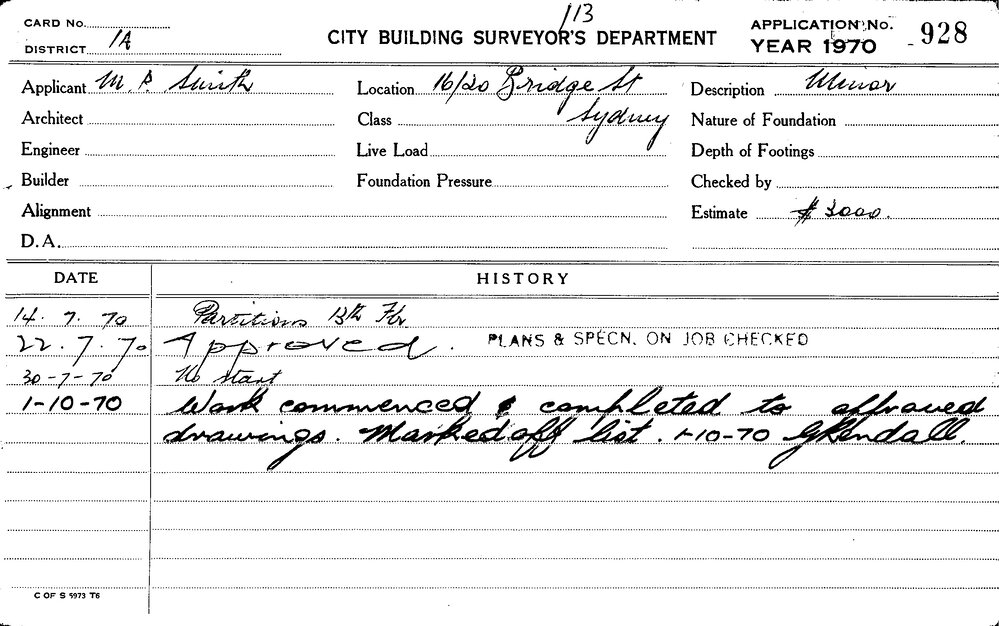 113
CARD No.
DISTRICT 1A
CITY BUILDING SURVEYOR'S DEPARTMENT
APPLICATION No. 928
YEAR 1970
Applicant M. P. Smith
Location 16/20 Bridge St Sydney
Description Minor
Architect
Class
Nature of Foundation
Engineer
Live Load
Depth of Footings
Builder
Foundation Pressure
Checked by
Alignment
Estimate $3000.
D.A.
DATE HISTORY
14. 7. 70 Partitions 13th Flr
22. 7. 70 Approved. PLANS & SPECN. ON JOB CHECKED
30-7-70 No start
1-10-70 Work commenced & completed to approved
drawings. Marked off list. 1-10-70 GKendall.
C OF S 5973 T6